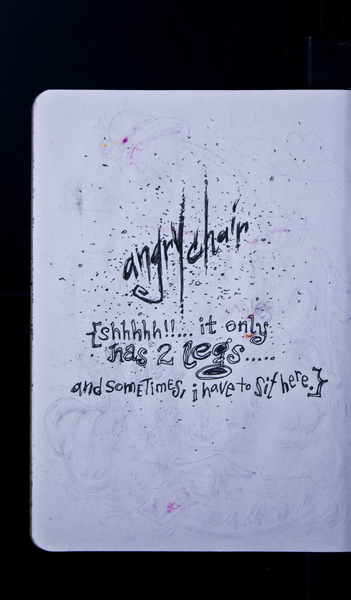 angry chair
{shhhhh!!... it only
has 2 legs.....
and sometimes, i have to sit here.}